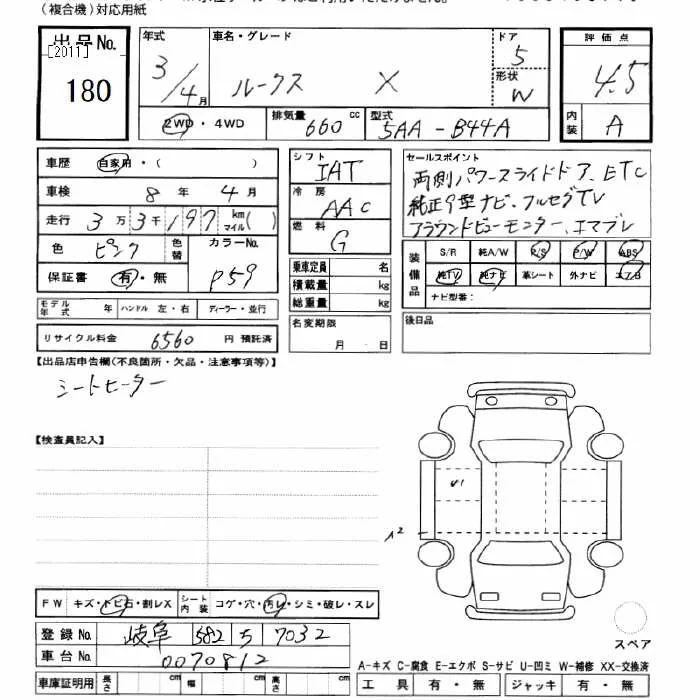 （複合機）対応用紙
出品No. [2011] 180
年式 3/4月
車名・グレード ルークス X
ドア 5
形状 W
評価点 4.5
内装 A
2WD・4WD
排気量 660 cc
型式 5AA-B44A
車歴 自家用・（ ）
車検 8年 4月
走行 3万3千197 km マイル（ ）
色 ピンク 色替
カラーNo. P59
保証書 有・無
モデル年式 年 ハンドル 左・右 ディーラー・並行
リサイクル料金 6560 円 預託済
シフト IAT
冷房 AAC
燃料 G
乗車定員 名
積載量 kg
総重量 kg
名変期限 月 日
セールスポイント
両側パワースライドドア、ETC
純正9型ナビ、フルセグTV
アラウンドビューモニター、エマブレ
装備品 S/R 純A/W P/S P/W ABS
純TV 純ナビ 革シート 外ナビ エア/B
ナビ型番：
後日品
【出品店申告欄（不良箇所・欠品・注意事項等）】
シートヒーター
【検査員記入】
U1
A2
FW キズ・トビ石・割レX
シート内装 コゲ・穴・汚レ・シミ・破レ・スレ
登録No. 岐阜 582 ち 7032
車台No. 0070812
車庫証明用 長さ cm 幅 cm 高さ cm
スペア
A-キズ C-腐食 E-エクボ S-サビ U-凹ミ W-補修 XX-交換済
工具 有・無 ジャッキ 有・無